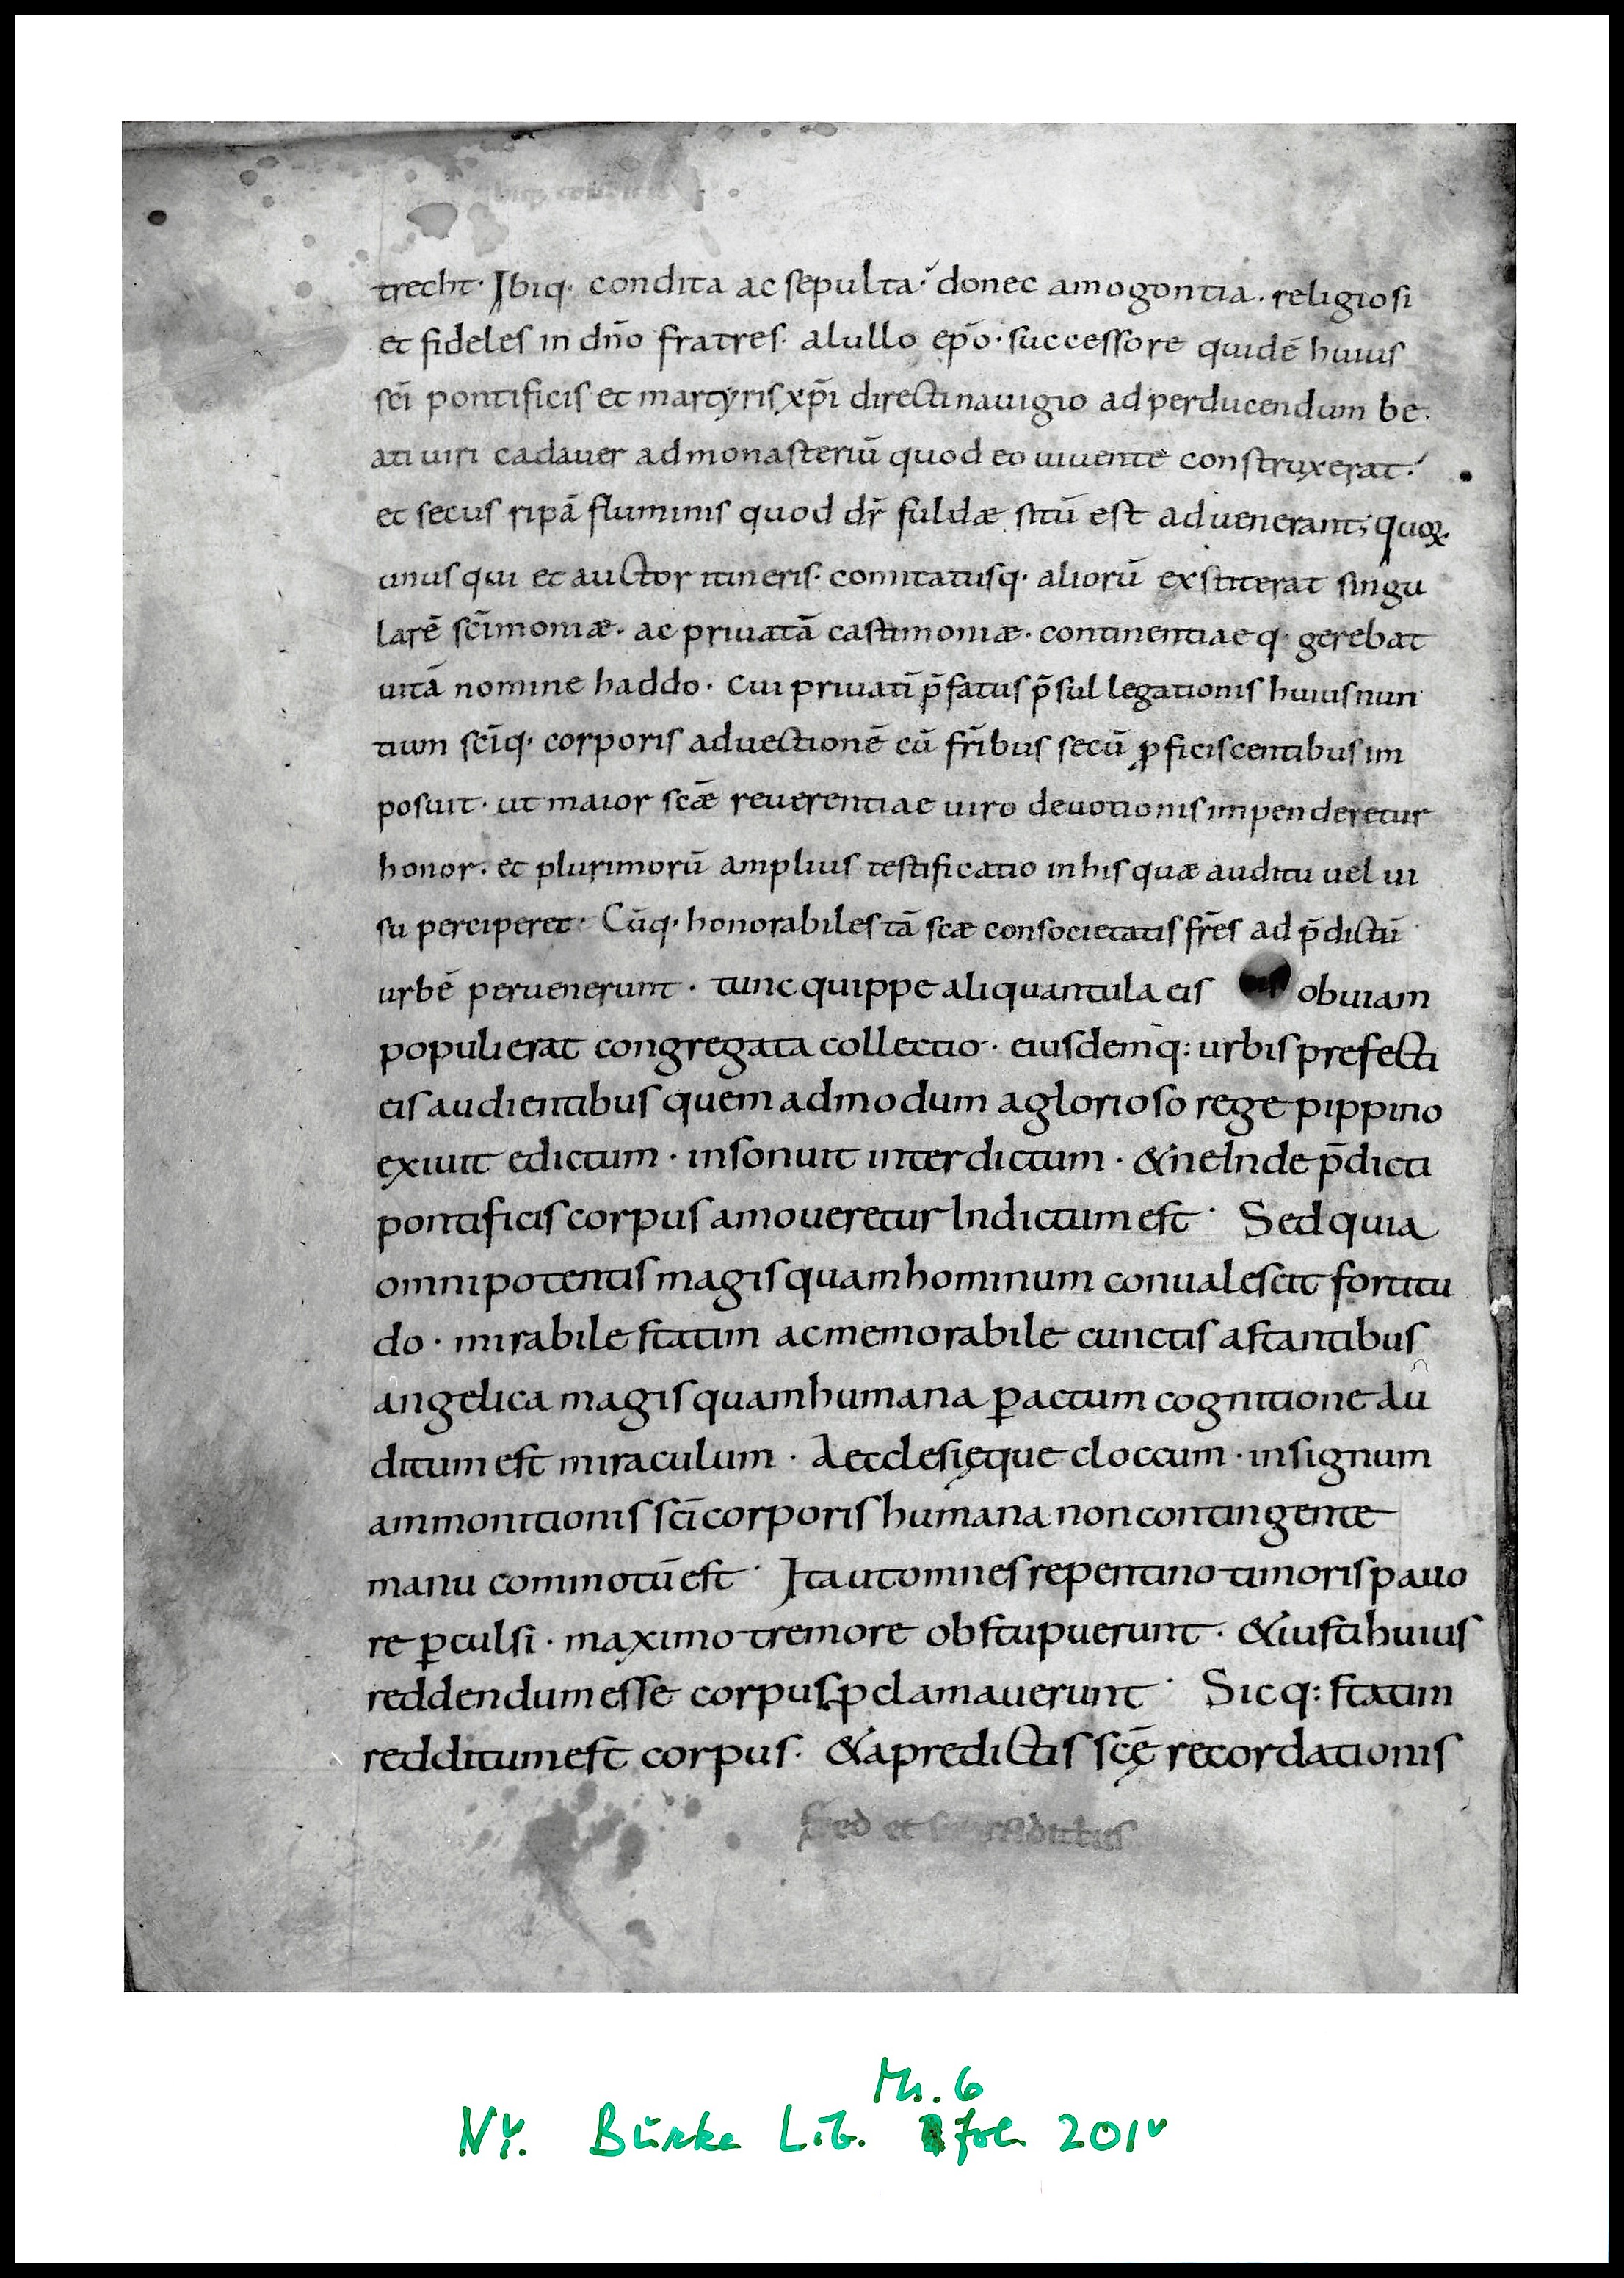 trecht· Ibiq· condita ac sepulta· donec amogontia. religiosi
et fideles in dn̄o fratres· alullo ep̄o· successore quidē huius
sc̄i pontificis et martyris xp̄i directi nauigio ad perducendum be.
ati uiri cadauer ad monasteriū quod eo uiuente construxerat·
et secus ripā fluminis quod dr̄ fuldæ sitū est aduenerant; quoꝝ·
unus qui et auctor itineris· comitatusq· aliorū exstiterat singu
larē sc̄imoniæ· ac priuatā castimoniæ· continentiae q· gerebat
uitā nomine haddo· cui priuatī p̄fatus p̄sul legationis huius nun
tium sc̄iq· corporis aduectionē cū fr̄ibus secū ꝓficiscentibus im
posuit· ut maior sc̄æ reuerentiae uiro deuotionis impenderetur
honor· et plurimorū amplius testificatio in his quæ auditu uel ui
su perciperet· Cūq· honorabiles tā scæ consocietatis fr̄es ad p̄dictū
urbē peruenerunt· tunc quippe aliquantula eis obuiam
populi erat congregata collectio· eiusdemq: urbis prefecti
eis audientibus quem admodum aglorioso rege pippino
exiuit edictum· insonuit interdictum· & ne Inde p̄dicti
pontificis corpus amoueretur Indictum est· Sed quia
omnipotentis magis quam hominum conualescit fortitu
do· mirabile statim ac memorabile cunctis astantibus
angelica magis quam humana ꝑactum cognitione Au
ditum est miraculum· Aecclesięque cloccum· in signum
ammonitionis sc̄i corporis humana non contingente
manu commotū est· Ita ut omnes repentino timoris pauo
re ꝑculsi· maximo tremore obstupuerunt· & iusti huius
reddendum esse corpus ꝓclamauerunt· Sicq: statim
redditum est corpus· & apredictis sc̄ę recordationis
Sed et
Ms. 6
NY. Burke Lib. fol 201v